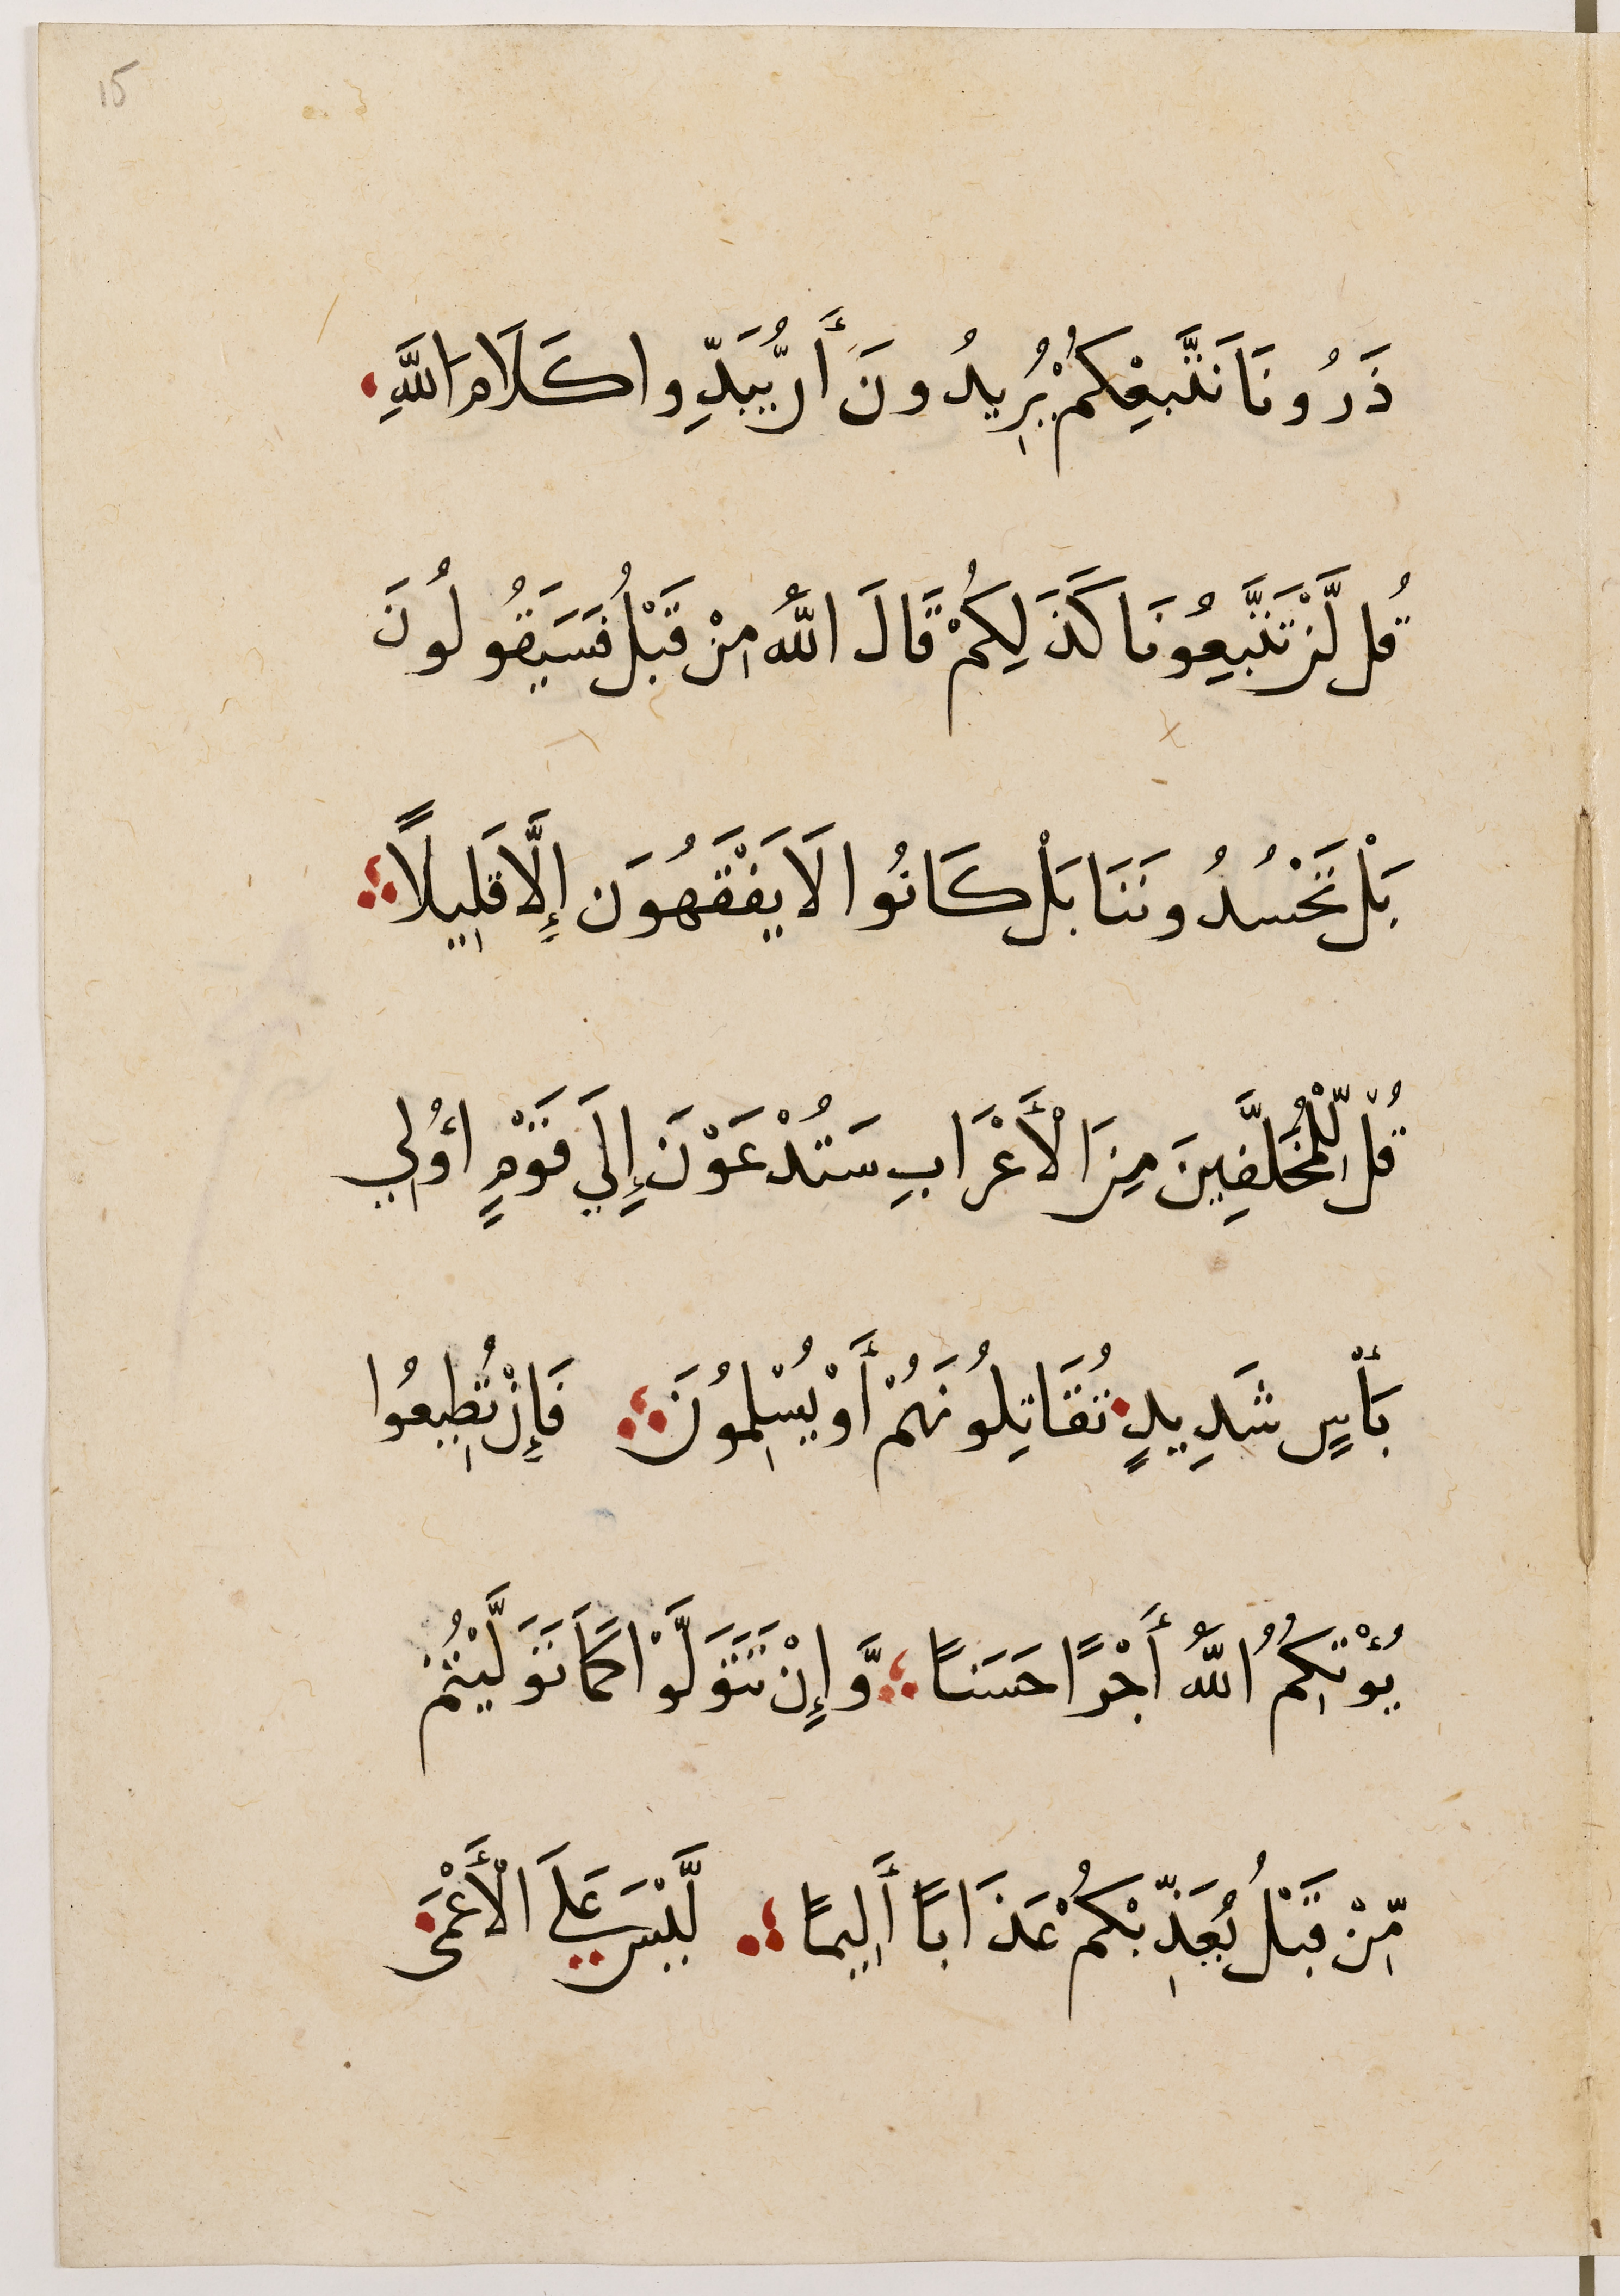 15
ذَرُونَا نَتَّبِعْكُمْ يُرِيدُونَ أَن يُّبَدِّلُوا كَلَامَ اللَّهِ
قُل لَّنْ تَتَّبِعُونَا كَذَلِكُمْ قَالَ اللَّهُ مِنْ قَبْلُ فَسَيَقُولُونَ
بَلْ تَحْسُدُونَنَا بَلْ كَانُوا لَا يَفْقَهُونَ إِلَّا قَلِيلًا
قُلْ لِّلْمُخَلَّفِينَ مِنَ الْأَعْرَابِ سَتُدْعَوْنَ إِلَى قَوْمٍ أُولِي
بَأْسٍ شَدِيدٍ تُقَاتِلُونَهُمْ أَوْ يُسْلِمُونَ فَإِنْ تُطِيعُوا
يُؤْتِكُمُ اللَّهُ أَجْرًا حَسَنًا وَّإِنْ تَتَوَلَّوْا كَمَا تَوَلَّيْتُمْ
مِّنْ قَبْلُ يُعَذِّبْكُمْ عَذَابًا أَلِيمًا لَّيْسَ عَلَى الْأَعْمَى